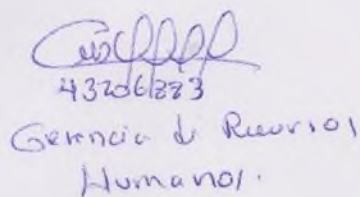 43206223
Gerencia de Recursos
Humanos.